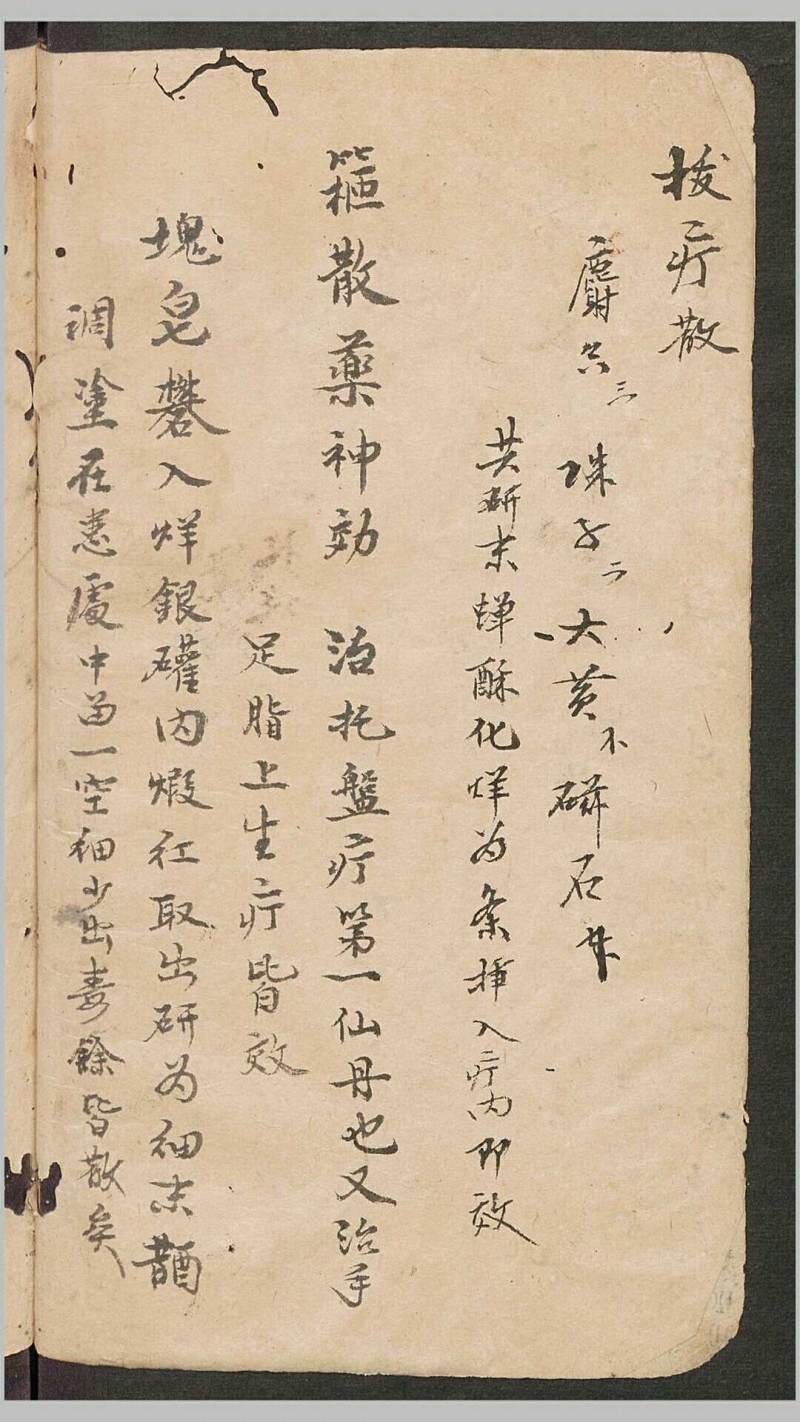 拔疔散
麝香三 珠子二 大黄不 磷石
共研末蟬酥化烊为条揷入疔内即效
箍散藥神効 治托盤疔第一仙丹也又治手
足脂上生疔皆效
塊皂礬入烊銀礶内煆紅取出研为細末醋
調塗在患處中留一空細少出毒餘皆散矣